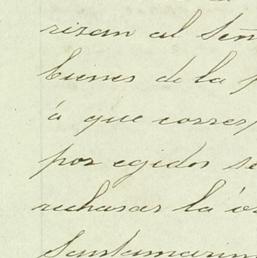 rizan al Señ
bienes de la p
á que corres
por egidos se
rechasar la ór
Santamarin